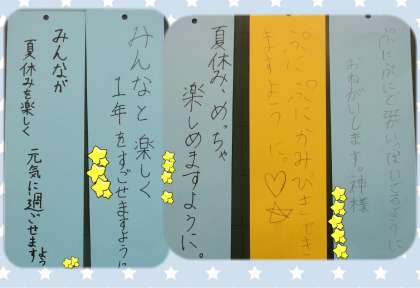 ぷにぷにで がいっぱいでるように
おねがいします。神様
ぷにぷにかみびきでき
ますように。♡☆
夏休みめっちゃ
楽しめますように。
みんなと楽しく
1年をすごせますように
みんなが
夏休みを楽しく
元気に過ごせますよう